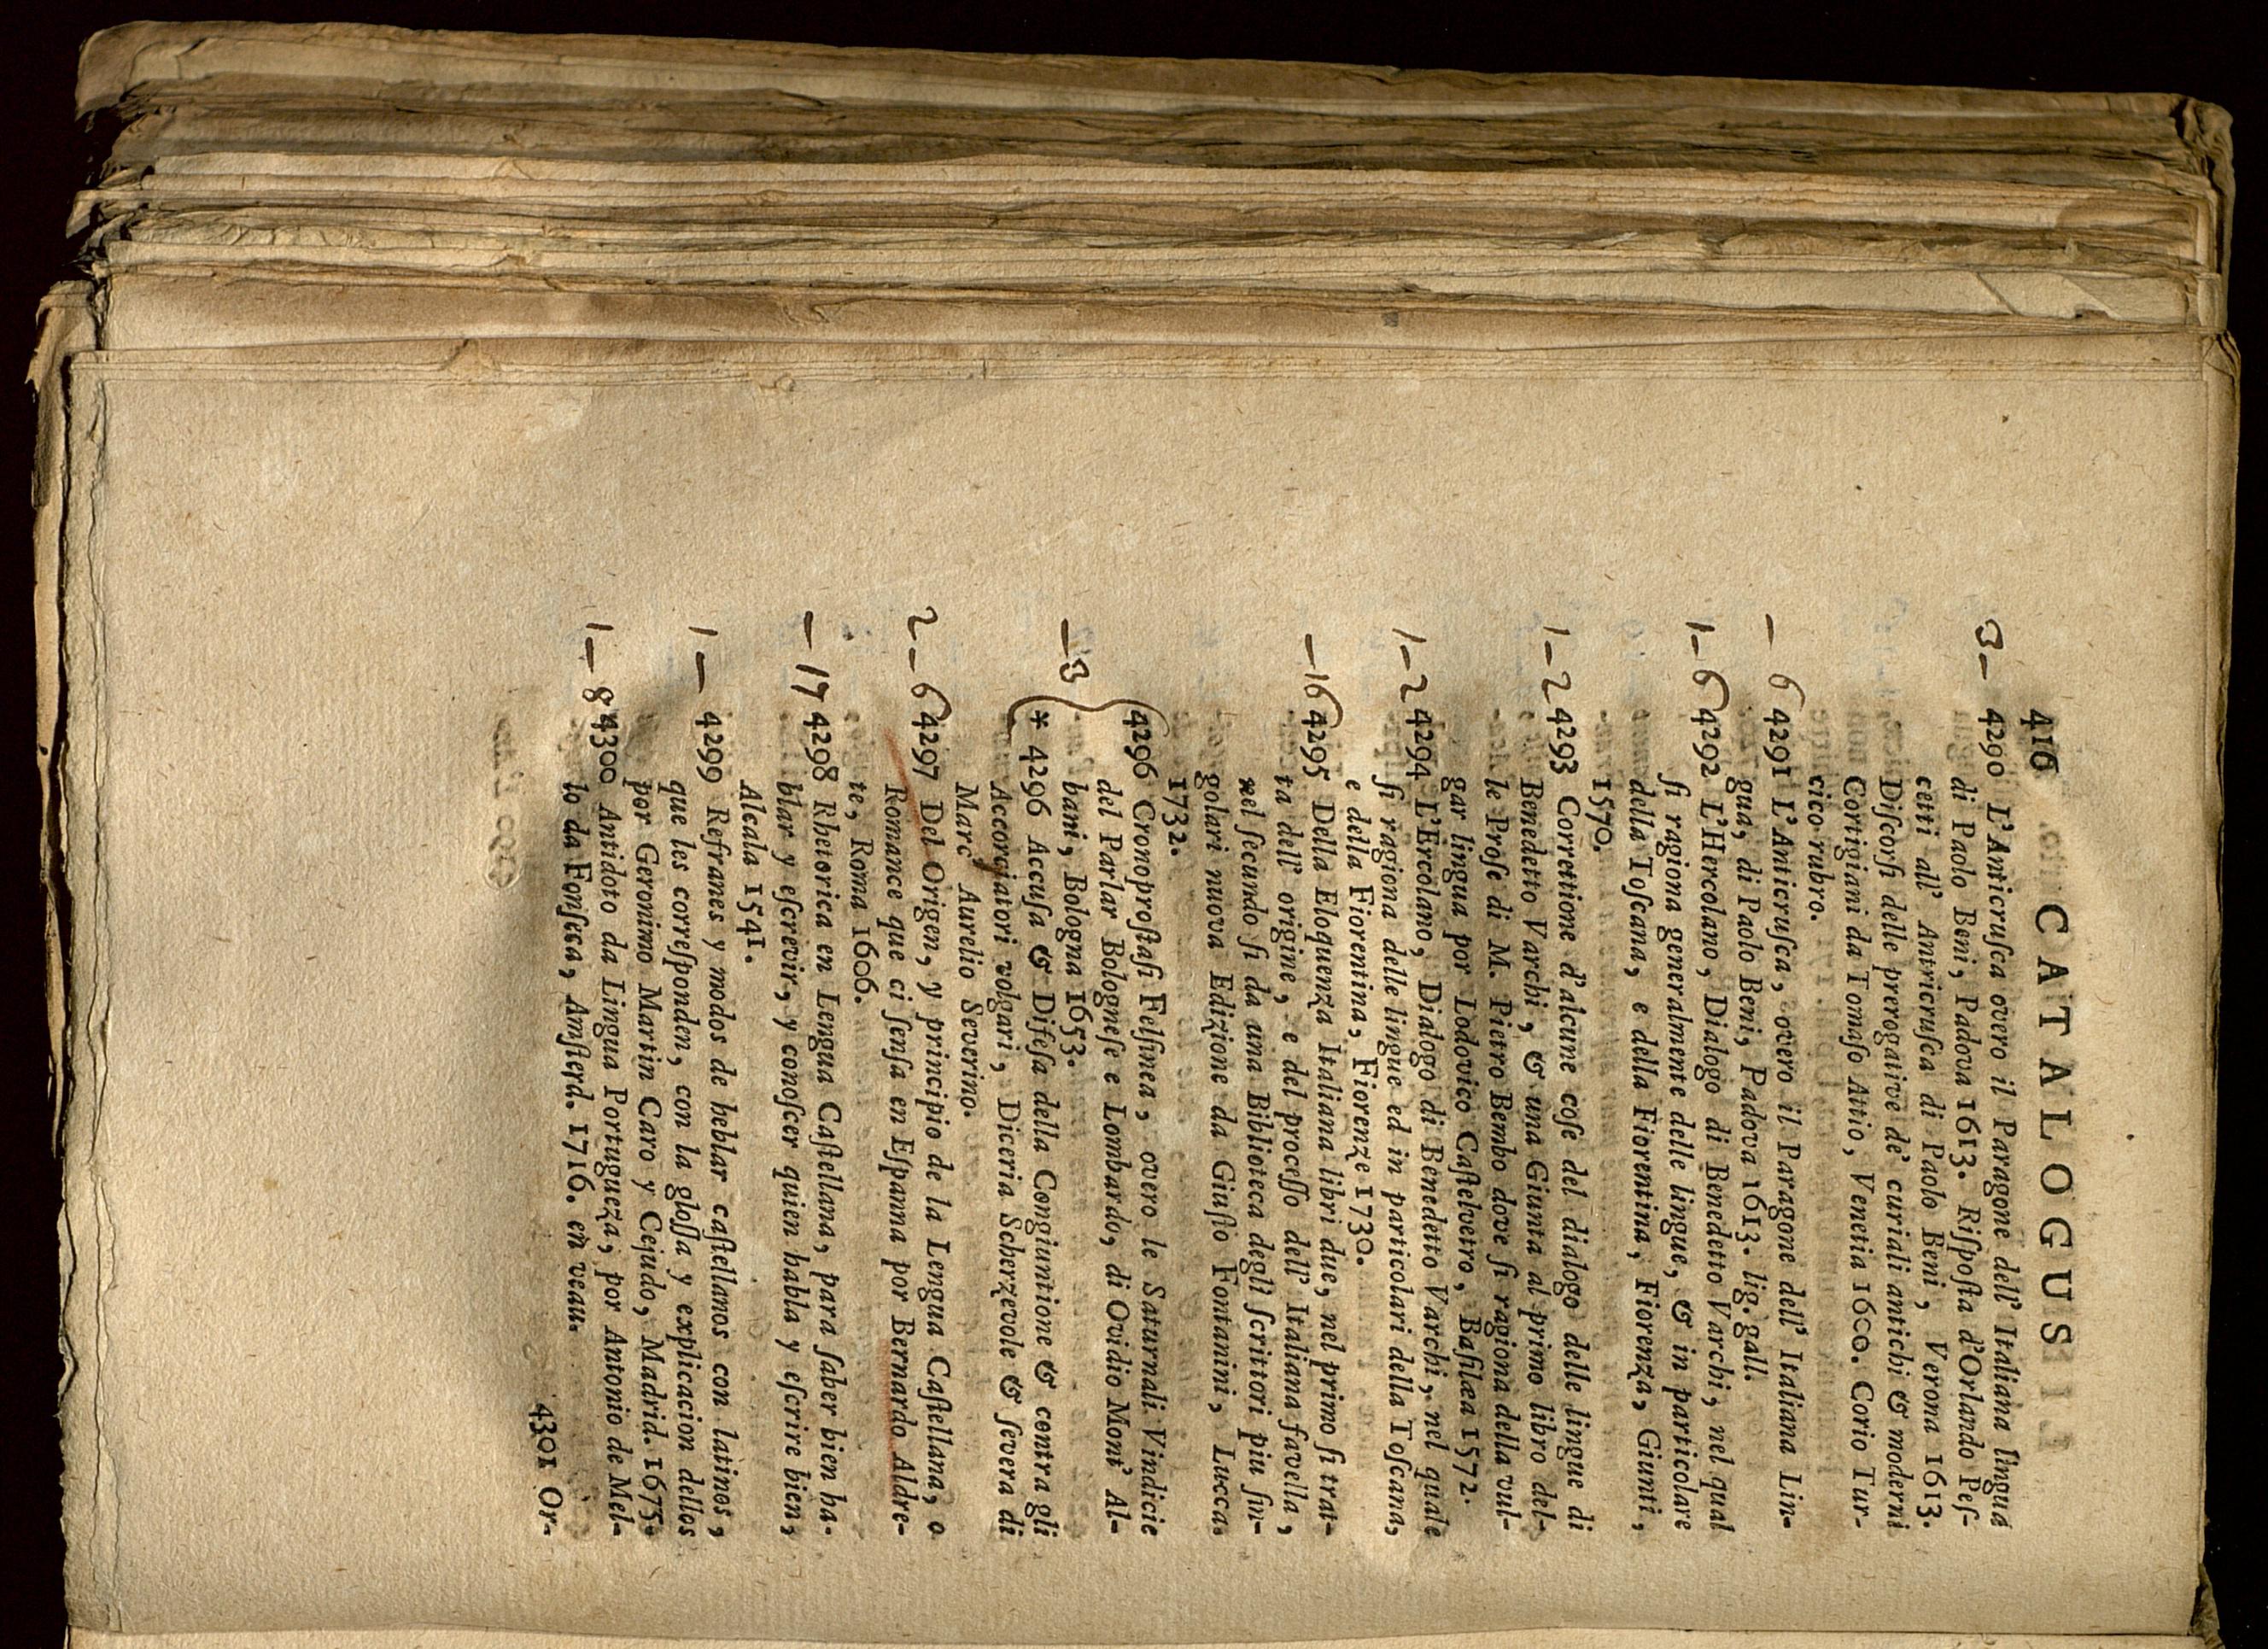 410 CATALOGUS
3 — 4290 L'Anticruſca overo il Paragone dell' Italiana lingua
di Paolo Beni, Padova 1613. Riſpoſta d'Orlando Peſ-
cetti all' Antricruſca di Paolo Beni, Verona 1613.
Diſcorſi delle prerogative de' curiali antichi & moderni
Cortigiani da Tomaſo Attio, Venetia 1600. Corio Tur-
cico rubro.
— 6 4291 L'Anticruſca, overo il Paragone dell' Italiana Lin-
gua, di Paolo Beni, Padova 1613. lig. gall.
1 — 6 4292 L'Hercolano, Dialogo di Benedetto Varchi, nel qual
ſi ragiona generalmente delle lingue, & in particolare
della Toſcana, e della Fiorentina, Fiorenza, Giunti,
1570.
1 — 2 4293 Correttione d'alcune coſe del dialogo delle lingue di
Benedetto Varchi, & una Giunta al primo libro del-
le Proſe di M. Pietro Bembo dove ſi ragiona della vul-
gar lingua por Lodovico Caſtelvetro, Baſilæa 1572.
1 — 2 4294 L'Ercolano, Dialogo di Benedetto Varchi, nel quale
ſi ragiona delle lingue ed in particolari della Toſcana,
e della Fiorentina, Fiorenze 1730.
— 16 4295 Della Eloquenza Italiana libri due, nel primo ſi trat-
ta dell' origine, e del proceſſo dell' Italiana favella,
nel ſecundo ſi da una Biblioteca degli ſcrittori piu ſin-
golari nuova Edizione da Giuſto Fontanini, Lucca.
1732.
— 3 4296 Cronoproſtaſi Felſinea, overo le Saturnali Vindicie
del Parlar Bologneſe e Lombardo, di Ovidio Mont' Al-
bani, Bologna 1653.
* 4296 Accuſa & Difeſa della Congiuntione & contra gli
Accorciatori volgari, Diceria Scherzevole & ſevera di
Marc' Aurelio Severino.
2 — 6 4297 Del Origen, y principio de la Lengua Caſtellana, o
Romance que ci ſenſa en Eſpanna por Bernardo Aldre-
te, Roma 1606.
— 17 4298 Rhetorica en Lengua Caſtellana, para ſaber bien ha-
blar y eſcrevir, y conoſcer quien habla y eſcrire bien,
Alcala 1541.
1 — 4299 Refranes y modos de heblar caſtellanos con latinos,
que les correſponden, con la gloſſa y explicacion dellos
por Geronimo Martin Caro y Cejudo, Madrid. 1675.
1 — 8 4300 Antidoto da Lingua Portugueza, por Antonio de Mel-
lo da Fonſeca, Amſterd. 1716. en veau.
4301 Or-